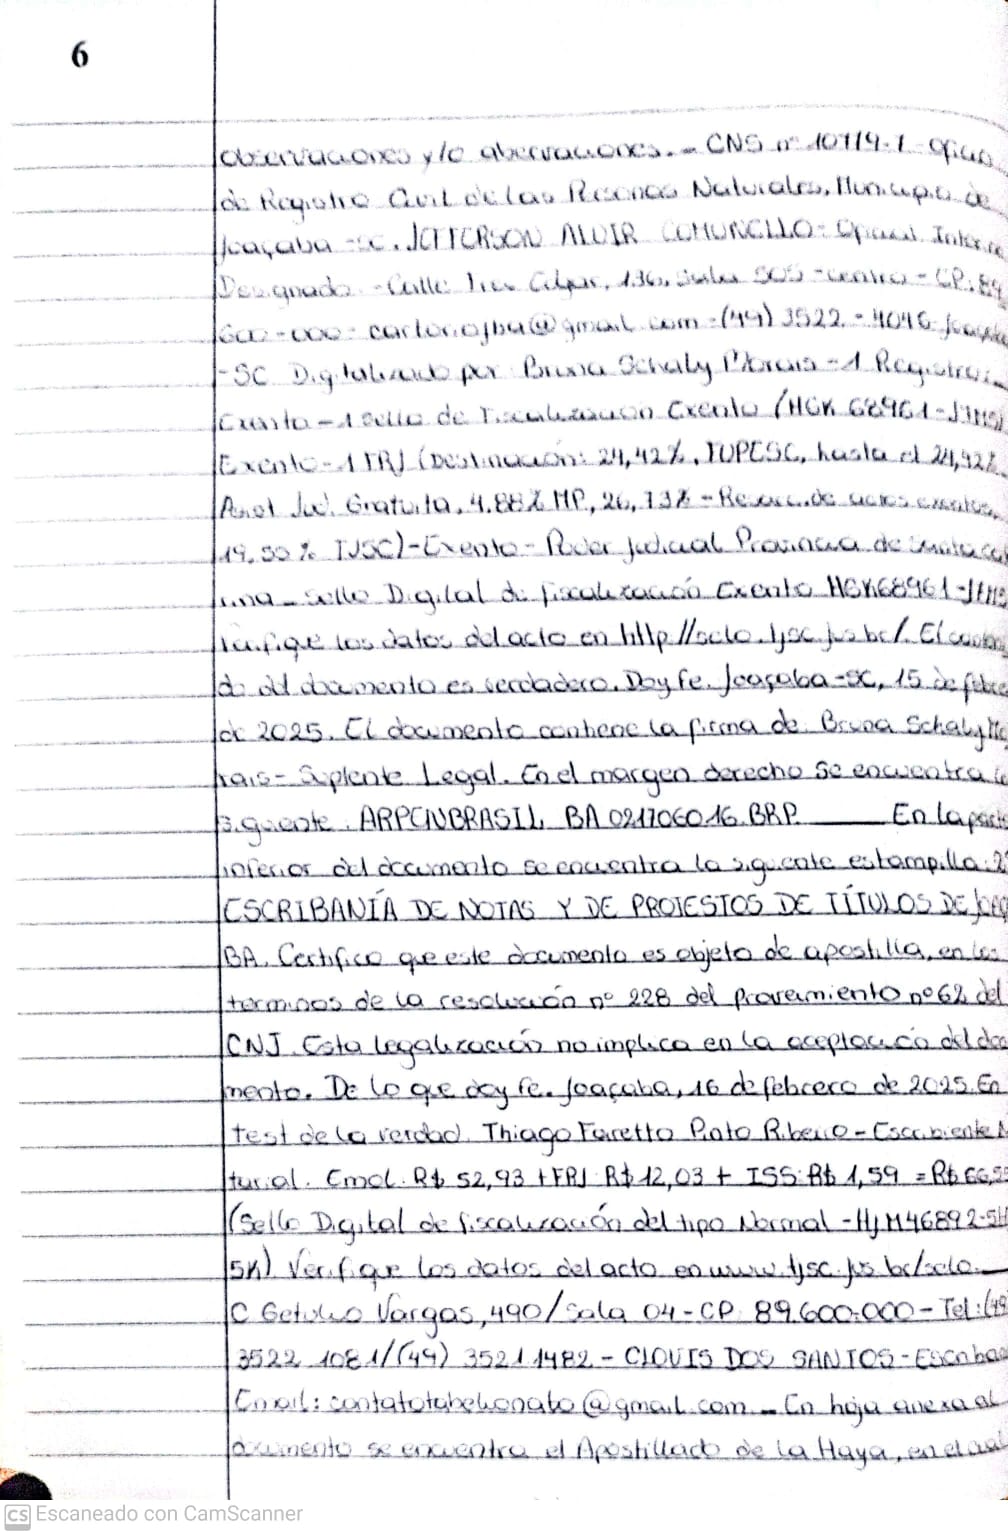 6
observaciones y/o abervaciones.- CNS nº 10779-1- Oficio
de Registro Civil de las Personas Naturales, Municipio de
Joaçaba -SC. JEFFERSON ALDIR COMUNELLO- Oficial Interino
Designado - Calle: 136, Salas 505 - centro - CP: 89
600-000- cartoriojba@gmail.com -(49) 3522 - 4046- Joaçaba
-SC Digitalizado por Bruna Schaly Morais - 1 Registro:
Exento - 1 Sello de Fiscalización Exento (HGK 68961-
Exento- 1 FRJ (Destinación: 24,42%, FUPESC, hasta el 24,42%
Asist Jud. Gratuita, 4.88% MP, 26,73% - Resarc. de actos exentos,
19,50% TJSC)-Exento- Poder Judicial Provincia de Santa Cata
rina - Sello Digital de fiscalización Exento HGK68961-
Verifique los datos del acto en http//selo.tjsc.jus.br/. El conteni
do del documento es verdadero. Doy fe. Joaçaba-SC, 15 de febrero
de 2025. El documento contiene la firma de Bruna Schaly Mo
rais- Suplente Legal. En el margen derecho se encuentra lo
siguiente. ARPENBRASIL BA 021706016.BRP. En la parte
inferior del documento se encuentra la siguiente estampilla. 2ª
ESCRIBANÍA DE NOTAS Y DE PROTESTOS DE TÍTULOS DE JOAÇA
BA. Certifico que este documento es objeto de apostilla, en los
terminos de la resolución nº 228 del proveimiento nº 62 del
CNJ. Esta legalización no implica en la aceptación del docu
mento. De lo que doy fe. Joaçaba, 16 de febrero de 2025. En
test de la verdad. Thiago Faretto Pinto Ribeiro - Escribiente No
turial. Emol. R$ 52,93 + FRJ: R$ 12,03 + ISS: R$ 1,59 = R$ 66,55
(Sello Digital de fiscalización del tipo Normal - HJM46892-
5K) Verifique los datos del acto en www.tjsc.jus.br/selo.
C Getulio Vargas, 490/Sala 04 - CP: 89.600.000 - Tel: (49
3522 1081/(49) 3521 1482 - CLOVIS DOS SANTOS - Escribano
Email: contatotabelionato@gmail.com - En hoja anexa al
documento se encuentra el Apostillado de La Haya, en el cual
CS Escaneado con CamScanner